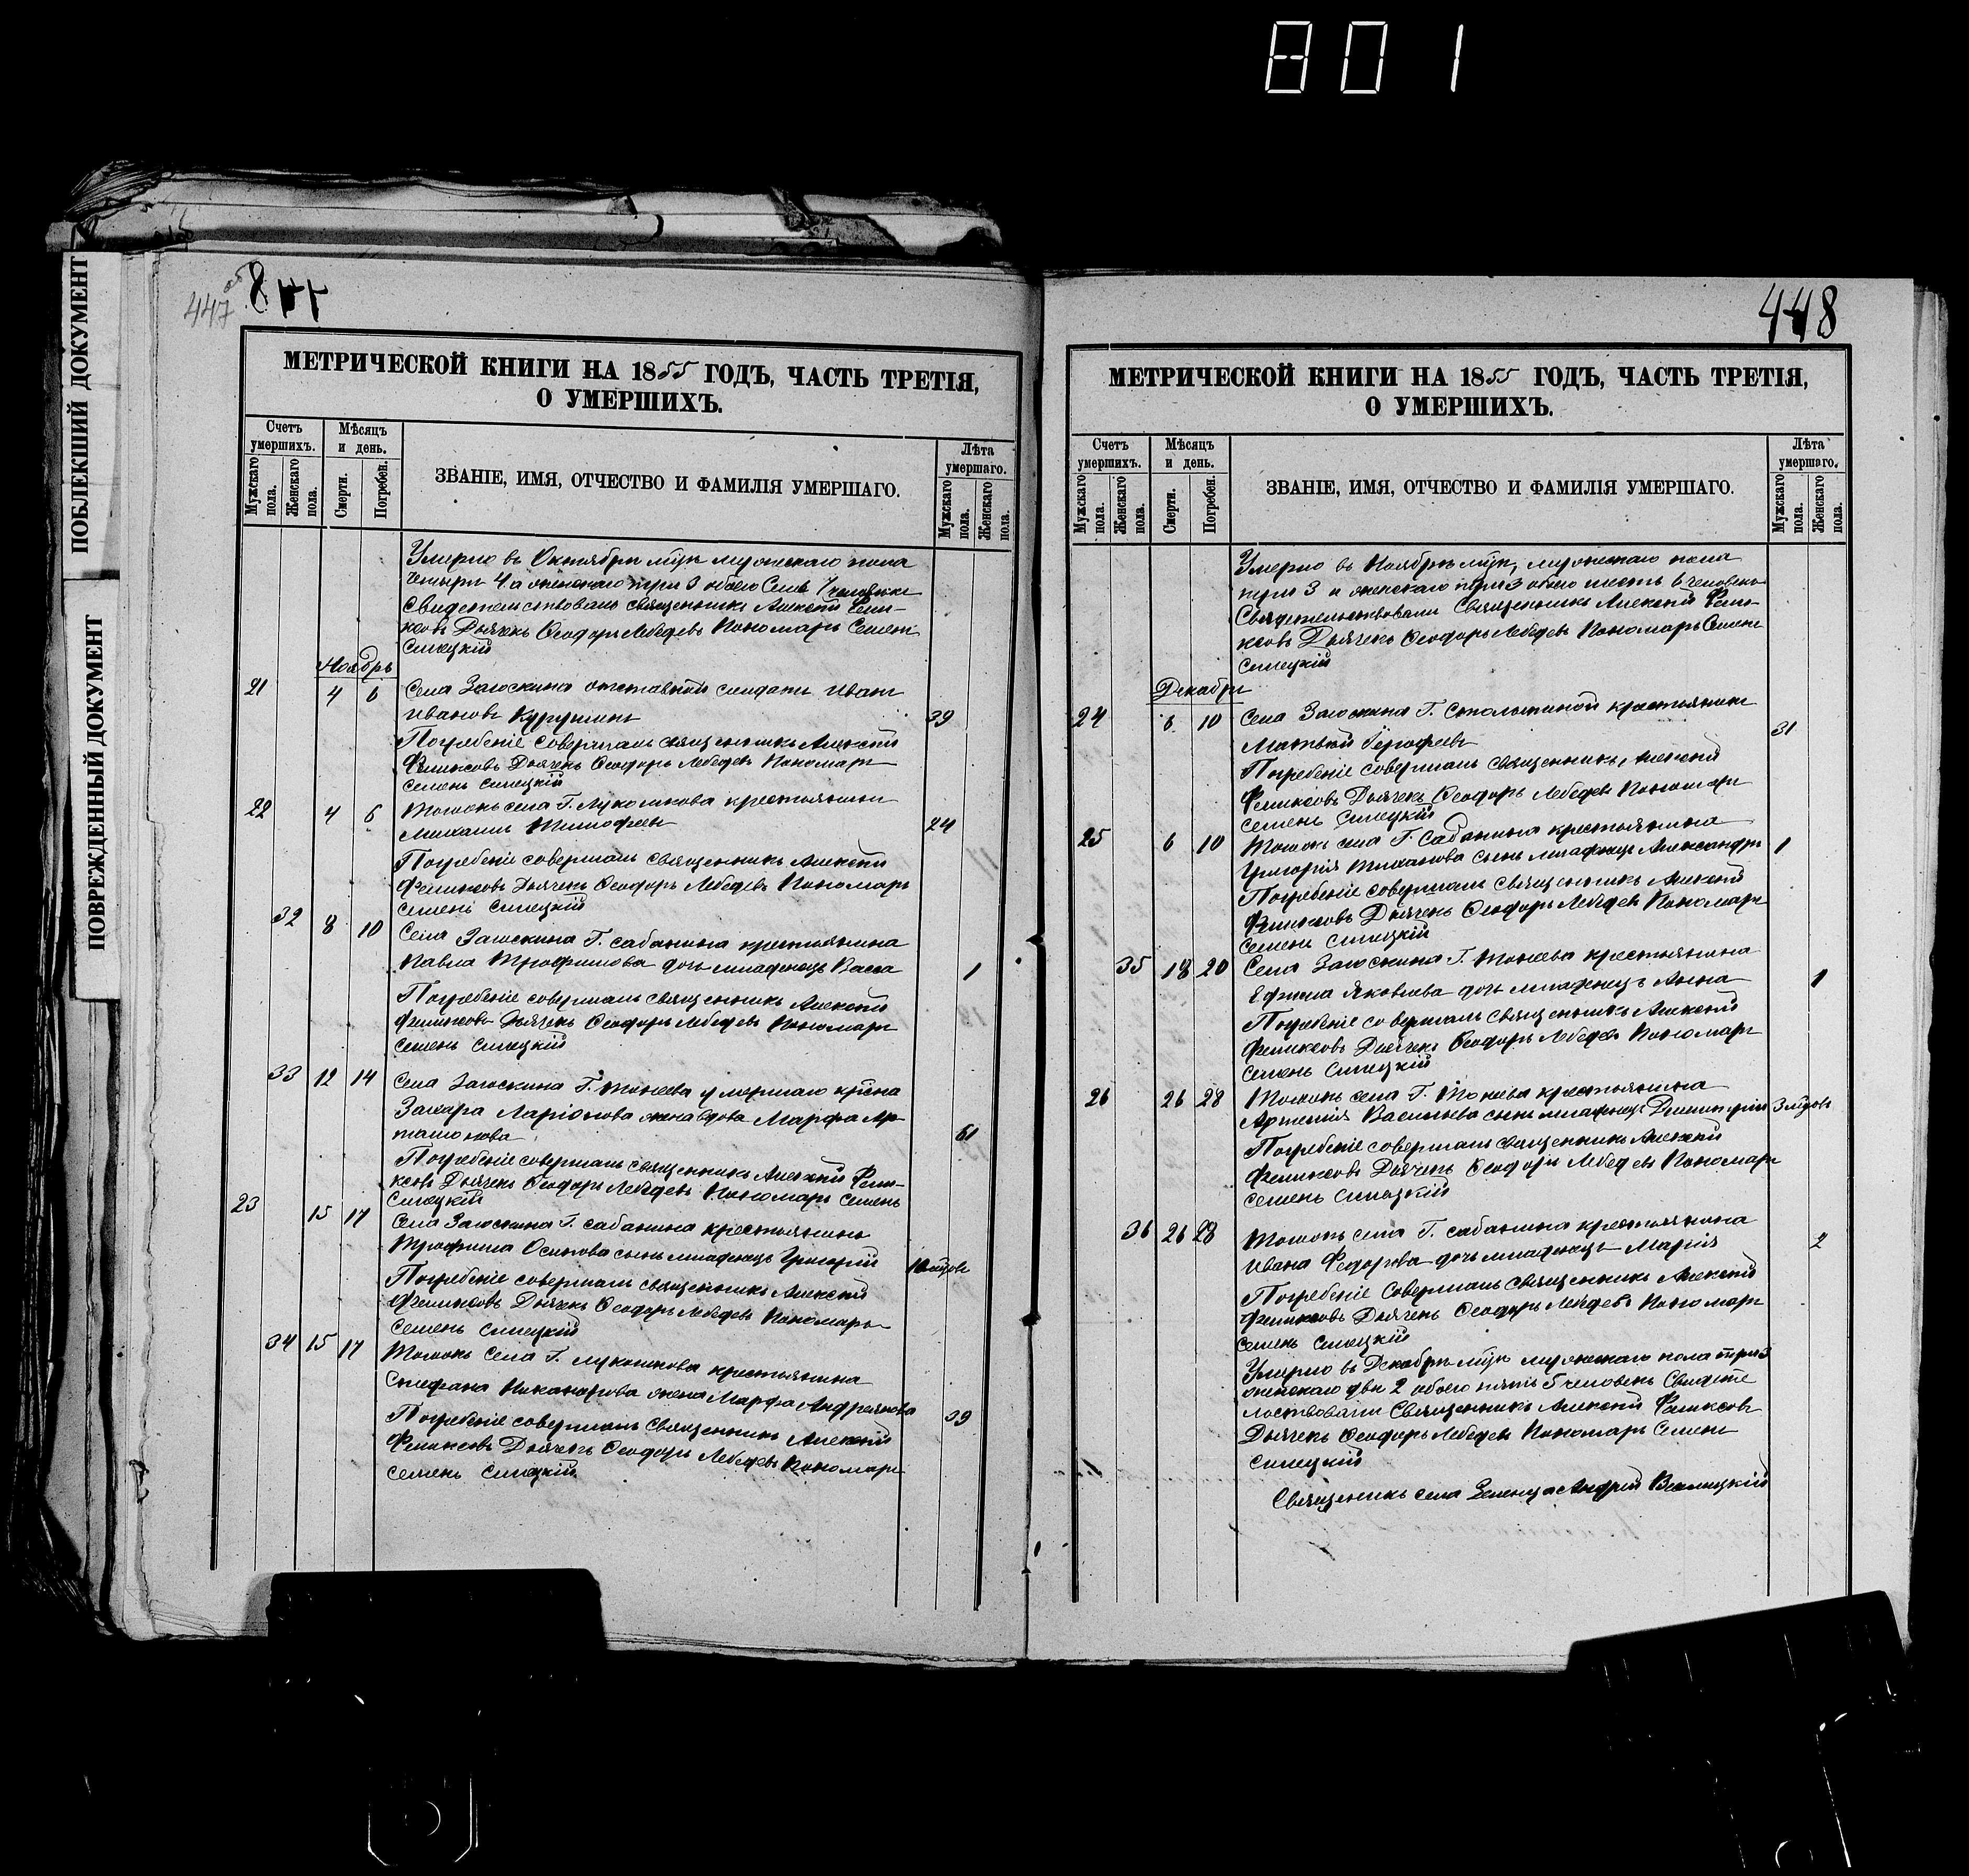 801
ПОБЛЕКШИЙ ДОКУМЕНТ
ПОВРЕЖДЕННЫЙ ДОКУМЕНТ
447 об
МЕТРИЧЕСКОЙ КНИГИ НА 1855 ГОДЪ, ЧАСТЬ ТРЕТІЯ,
О УМЕРШИХЪ.
Счетъ умершихъ.
Мѣсяцъ и день.
ЗВАНІЕ, ИМЯ, ОТЧЕСТВО И ФАМИЛІЯ УМЕРШАГО.
Лѣта умершаго.
Мужскаго пола.
Женскаго пола.
Смерти.
Погребен.
Мужскаго пола.
Женскаго пола.
Умерло въ Октябрѣ мцѣ мужескаго пола
четыри 4 а женскаго три 3 обоего Семь 7 человѣкъ
Свидетельствовали священникъ Алексѣй Фели-
ксовъ Дьячекъ Ѳеодоръ Лебедевъ Пономарь Семенъ
Силецкій
Ноябрь
21 4 6 Села Загоскина отставной солдатъ Иванъ
Ивановъ 39
Погребеніе совершалъ священникъ Алексѣй
Феликсовъ Дьячекъ Ѳеодоръ Лебедевъ Пономарь
Семенъ Силецкій
22 4 6 Тогожъ села Г. Лукошкова крестьянинъ
Михаилъ Тимофеевъ 24
Погребеніе совершалъ священникъ Алексѣй
Феликсовъ Дьячекъ Ѳеодоръ Лебедевъ Пономарь
Семенъ Силецкій
32 8 10 Села Загоскина Г. Сабанина крестьянина
Павла Трофимова дочь младенецъ Васса 1
Погребеніе совершалъ священникъ Алексѣй
Феликсовъ Дьячекъ Ѳеодоръ Лебедевъ Пономарь
Семенъ Силецкій
33 12 14 Села Загоскина Г. Тонеева умершаго крѣна
Захара Ларіонова жена вдова Марфа Ар-
тамонова 61
Погребеніе совершалъ священникъ Алексѣй Фели-
ксовъ Дьячекъ Ѳеодоръ Лебедевъ Пономарь Семенъ
Силецкій
23 15 17 Села Загоскина Г. Сабанина крестьянина
Трофима Осипова сынъ младенецъ Григорій
Погребеніе совершалъ священникъ Алексѣй
Феликсовъ Дьячекъ Ѳеодоръ Лебедевъ Пономарь
Семенъ Силецкій
34 15 17 Тогожъ Села Г. Лукошкова крестьянина
Стефана Никанорова жена Марфа Андреянова 39
Погребеніе совершалъ Священникъ Алексѣй
Феликсовъ Дьячекъ Ѳеодоръ Лебедевъ Пономарь
Семенъ Силецкій
448
МЕТРИЧЕСКОЙ КНИГИ НА 1855 ГОДЪ, ЧАСТЬ ТРЕТІЯ,
О УМЕРШИХЪ.
Счетъ умершихъ.
Мѣсяцъ и день.
ЗВАНІЕ, ИМЯ, ОТЧЕСТВО И ФАМИЛІЯ УМЕРШАГО.
Лѣта умершаго.
Мужскаго пола.
Женскаго пола.
Смерти.
Погребен.
Мужскаго пола.
Женскаго пола.
Умерло въ Ноябрѣ мцѣ мужескаго пола
три 3 и женскаго три 3 обоего шесть 6 человекъ
Свидетельствовали Священникъ Алексѣй Фели-
ксовъ Дьячекъ Ѳеодоръ Лебедевъ Пономарь Семенъ
Силецкій
Декабрь
24 6 10 Села Загоскина Г. Столыпиной крестьянинъ
Матвѣй Ерофеевъ 31
Погребеніе совершалъ священникъ Алексѣй
Феликсовъ Дьячекъ Ѳеодоръ Лебедевъ Пономарь
Семенъ Силецкій
25 6 10 Тогожъ села Г. Сабанина крестьянина
Григорія сынъ младенецъ Александръ 1
Погребеніе совершалъ священникъ Алексѣй
Феликсовъ Дьячекъ Ѳеодоръ Лебедевъ Пономарь
Семенъ Силецкій
35 18 20 Села Загоскина Г. Тонеева крестьянина
Ефима Яковлева дочь младенецъ Анна 1
Погребеніе совершалъ священникъ Алексѣй
Феликсовъ Дьячекъ Ѳеодоръ Лебедевъ Пономарь
Семенъ Силецкій
26 26 28 Тогожъ села Г. Тонеева крестьянина
Артемія Васильева сынъ младенецъ Димитрій 3 мцовъ
Погребеніе совершалъ священникъ Алексѣй
Феликсовъ Дьячекъ Ѳеодоръ Лебедевъ Пономарь
Семенъ Силецкій
36 26 28 Тогожъ села Г. Сабанина крестьянина
Ивана Федорова дочь младенецъ Марія 2
Погребеніе Совершалъ священникъ Алексѣй
Феликсовъ Дьячекъ Ѳеодоръ Лебедевъ Пономарь
Семенъ Силецкій
Умерло въ Декабрѣ мцѣ мужескаго пола три 3
женскаго двѣ 2 обоего пять 5 человекъ Свидѣте
льствовали Священникъ Алексѣй Феликсовъ
Дьячекъ Ѳеодоръ Лебедевъ Пономарь Семенъ
Силецкій
Священникъ села Андрей